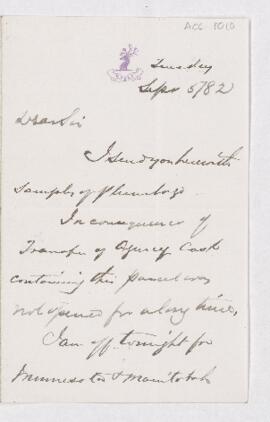 ACC 1010
Tuesday
Sept 5/82
Dear Sir
I send you herewith
Sample of Plumbago
In consequence of
Transfer of Agency Cask
containing this parcel was
not opened for a long time.
I am off tonight for
Minnesota & Manitoba